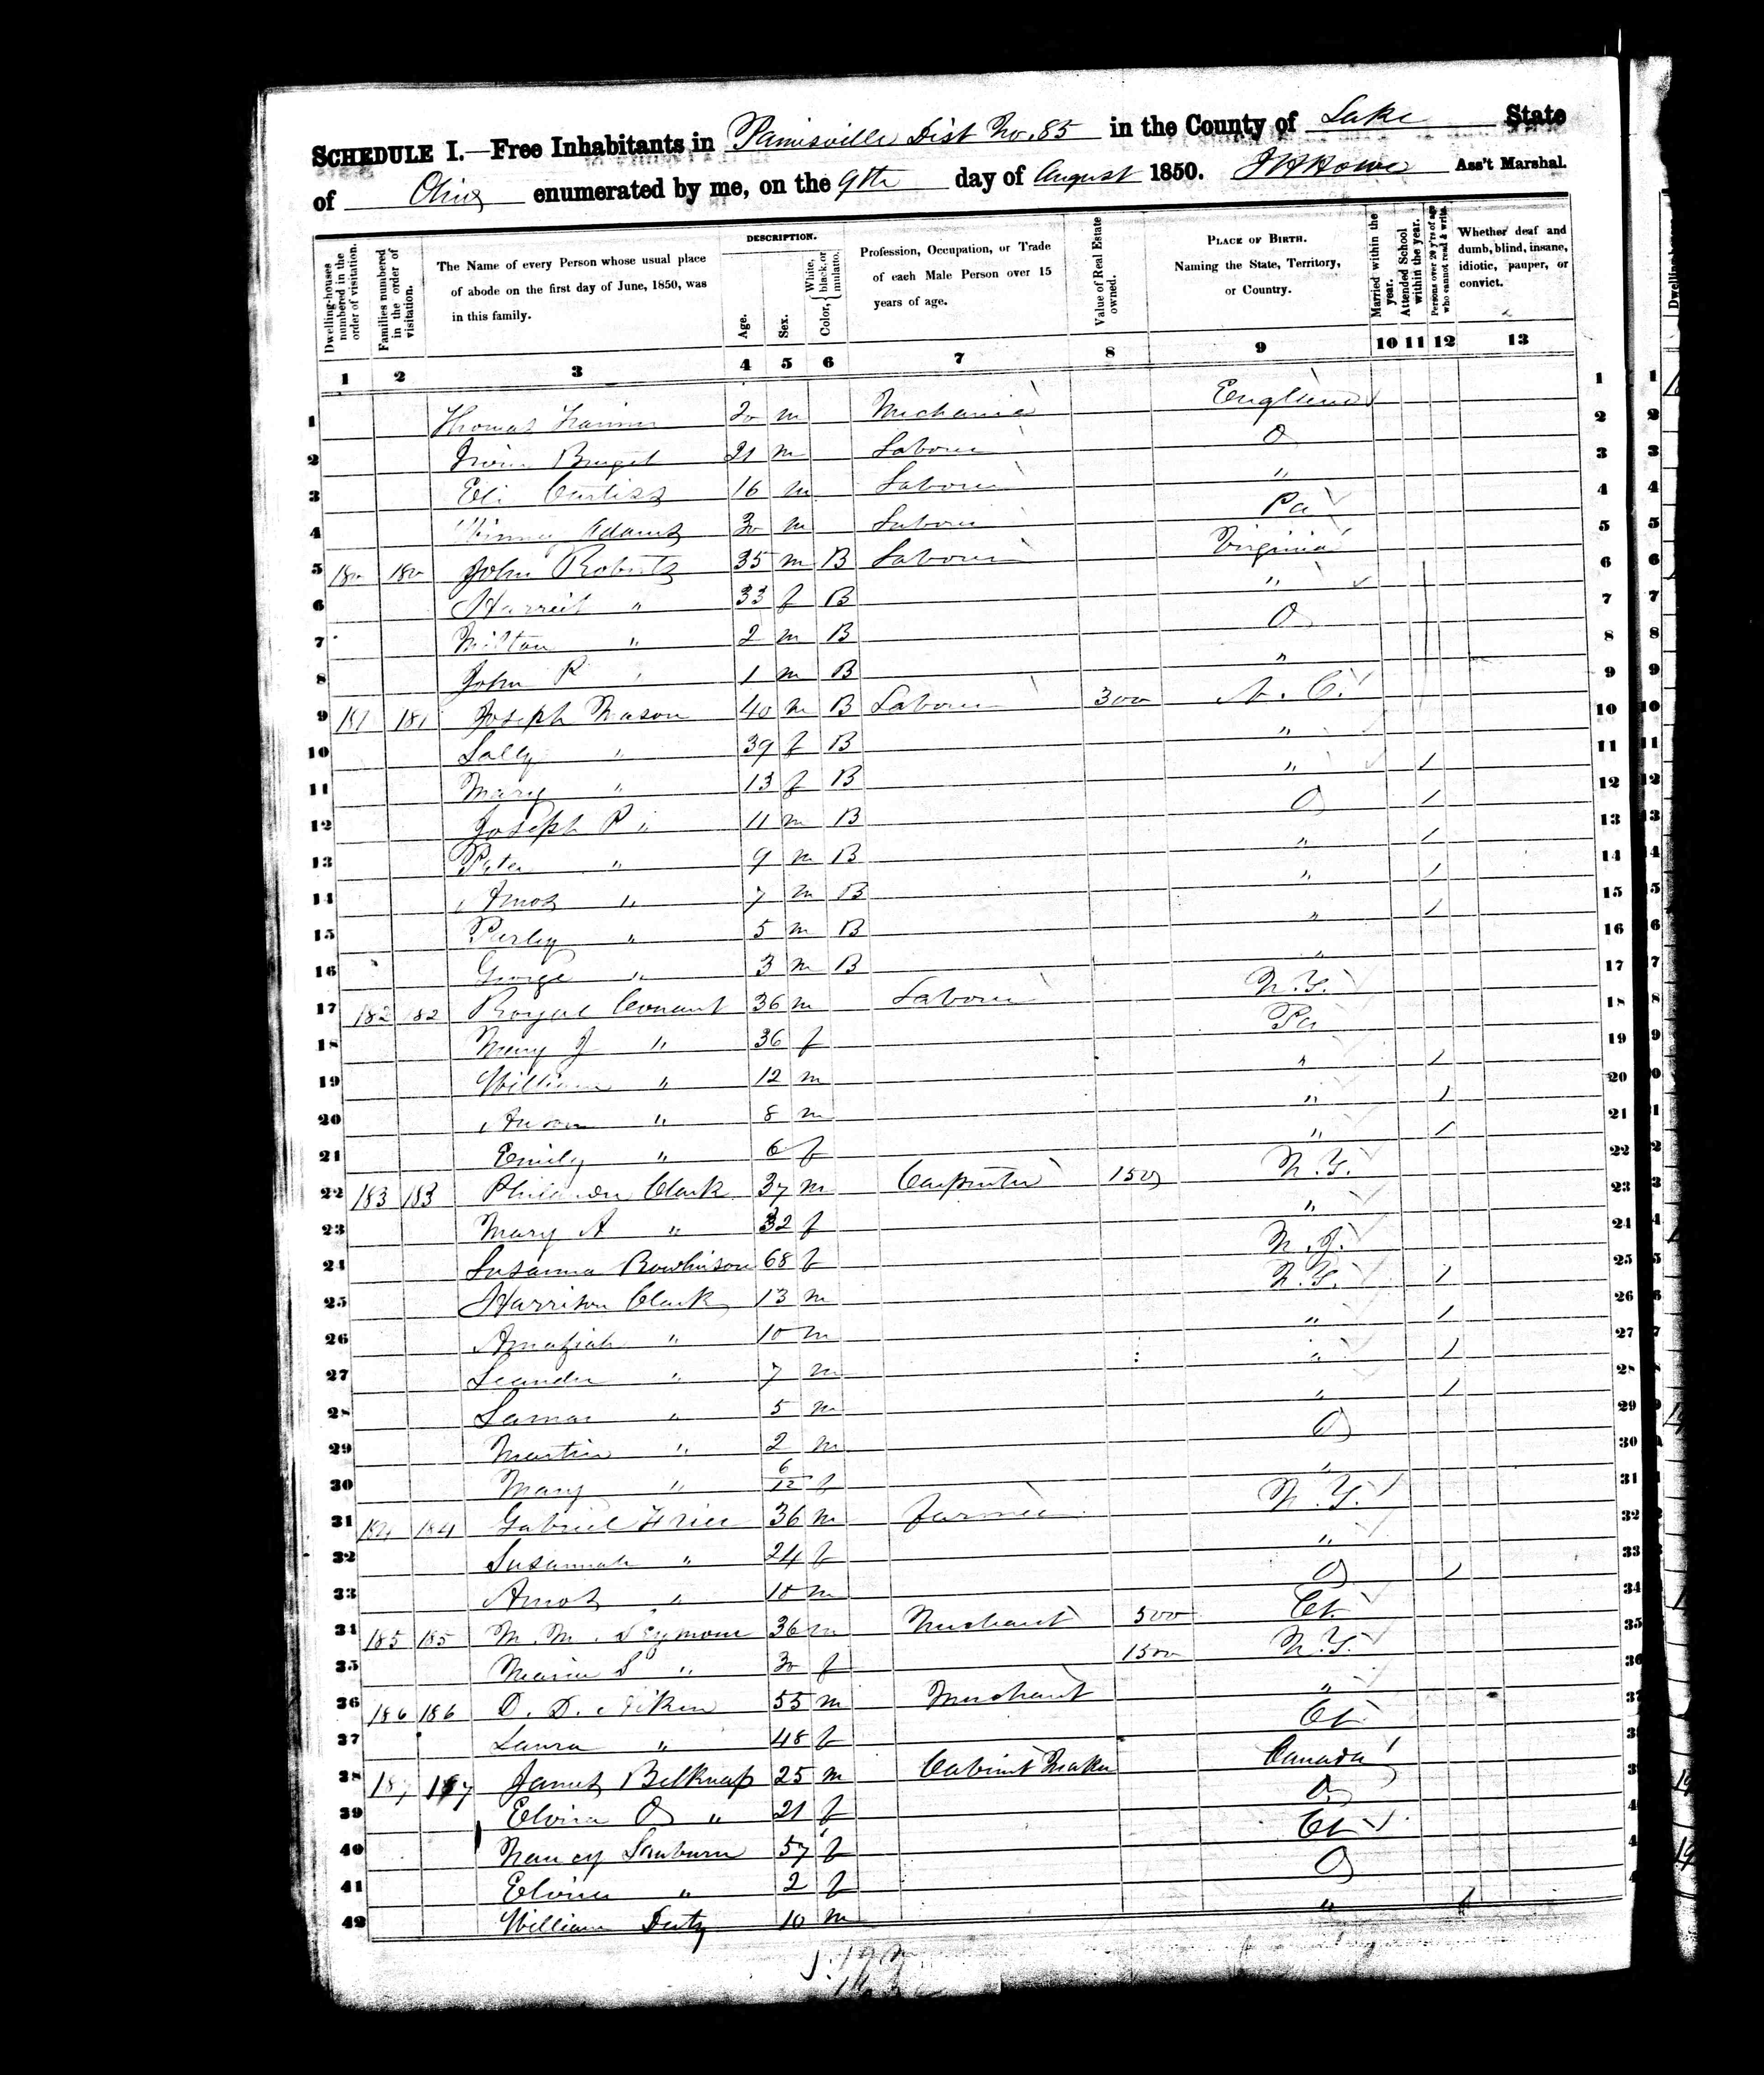 SCHEDULE I.—Free Inhabitants in Painesville Dist No. 85 in the County of Lake State
of Ohio enumerated by me, on the 9th day of August 1850. Ass't Marshal.
Dwelling-houses numbered in the order of visitation.
Families numbered in the order of visitation.
The Name of every Person whose usual place of abode on the first day of June, 1850, was in this family.
DESCRIPTION.
Age.
Sex.
Color, { White, black, or mulatto.
Profession, Occupation, or Trade of each Male Person over 15 years of age.
Value of Real Estate owned.
PLACE OF BIRTH. Naming the State, Territory, or Country.
Married within the year.
Attended School within the year.
Persons over 20 y'rs of age who cannot read & write.
Whether deaf and dumb, blind, insane, idiotic, pauper, or convict.
1 2 3 4 5 6 7 8 9 10 11 12 13
1 Thomas 20 m Mechanic England 1
2 21 m Laborer O 2
3 Eli Curtiss 16 m Laborer " 3
4 Adams 30 m Laborer Pa 4
5 180 180 John Roberts 35 m B Laborer Virginia 5
6 Harreit " 33 f B " 6
7 Milton " 2 m B O 7
8 John R " 1 m B " 8
9 181 181 Joseph Mason 40 m B Laborer 300 N. C. 9
10 Sally " 39 f B " 10
11 Mary " 13 f B " / 11
12 Joseph P " 11 m B O / 12
13 Peter " 9 m B " / 13
14 Amos " 7 m B " / 14
15 Perley " 5 m B " / 15
16 George " 3 m B " 16
17 182 182 Royal Conant 36 m Laborer N.Y. 17
18 Mary J " 36 f Pa 18
19 William " 12 m " / 19
20 " 8 m " / 20
21 Emily " 6 f " / 21
22 183 183 Philander Clark 37 m Carpenter 150 N.Y. 22
23 Mary A " 32 f " 23
24 Susanna 68 f N.J. 24
25 Harrison Clark 13 m N.Y. / 25
26 Amaziah " 10 m " / 26
27 Leander " 7 m " / 27
28 " 5 m " / 28
29 Martin " 2 m O 29
30 Mary " 6/12 f " 30
31 184 184 Gabriel 36 m Farmer N.Y. 31
32 Susannah " 24 f " 32
33 Amos " 10 m O / 33
34 185 185 M. M. Seymour 36 m Merchant 500 Ct. 34
35 Maria S " 30 f 1500 N.Y. 35
36 186 186 D. D. Aiken 55 m Merchant " 36
37 Laura " 48 f Ct
38 187 187 James Belknap 25 m Cabinet Maker Canada
39 Elvira O " 21 f O
40 Nancy Sanburn 57 f Ct
41 Elvira " 2 f O
42 William Duty 10 m " /